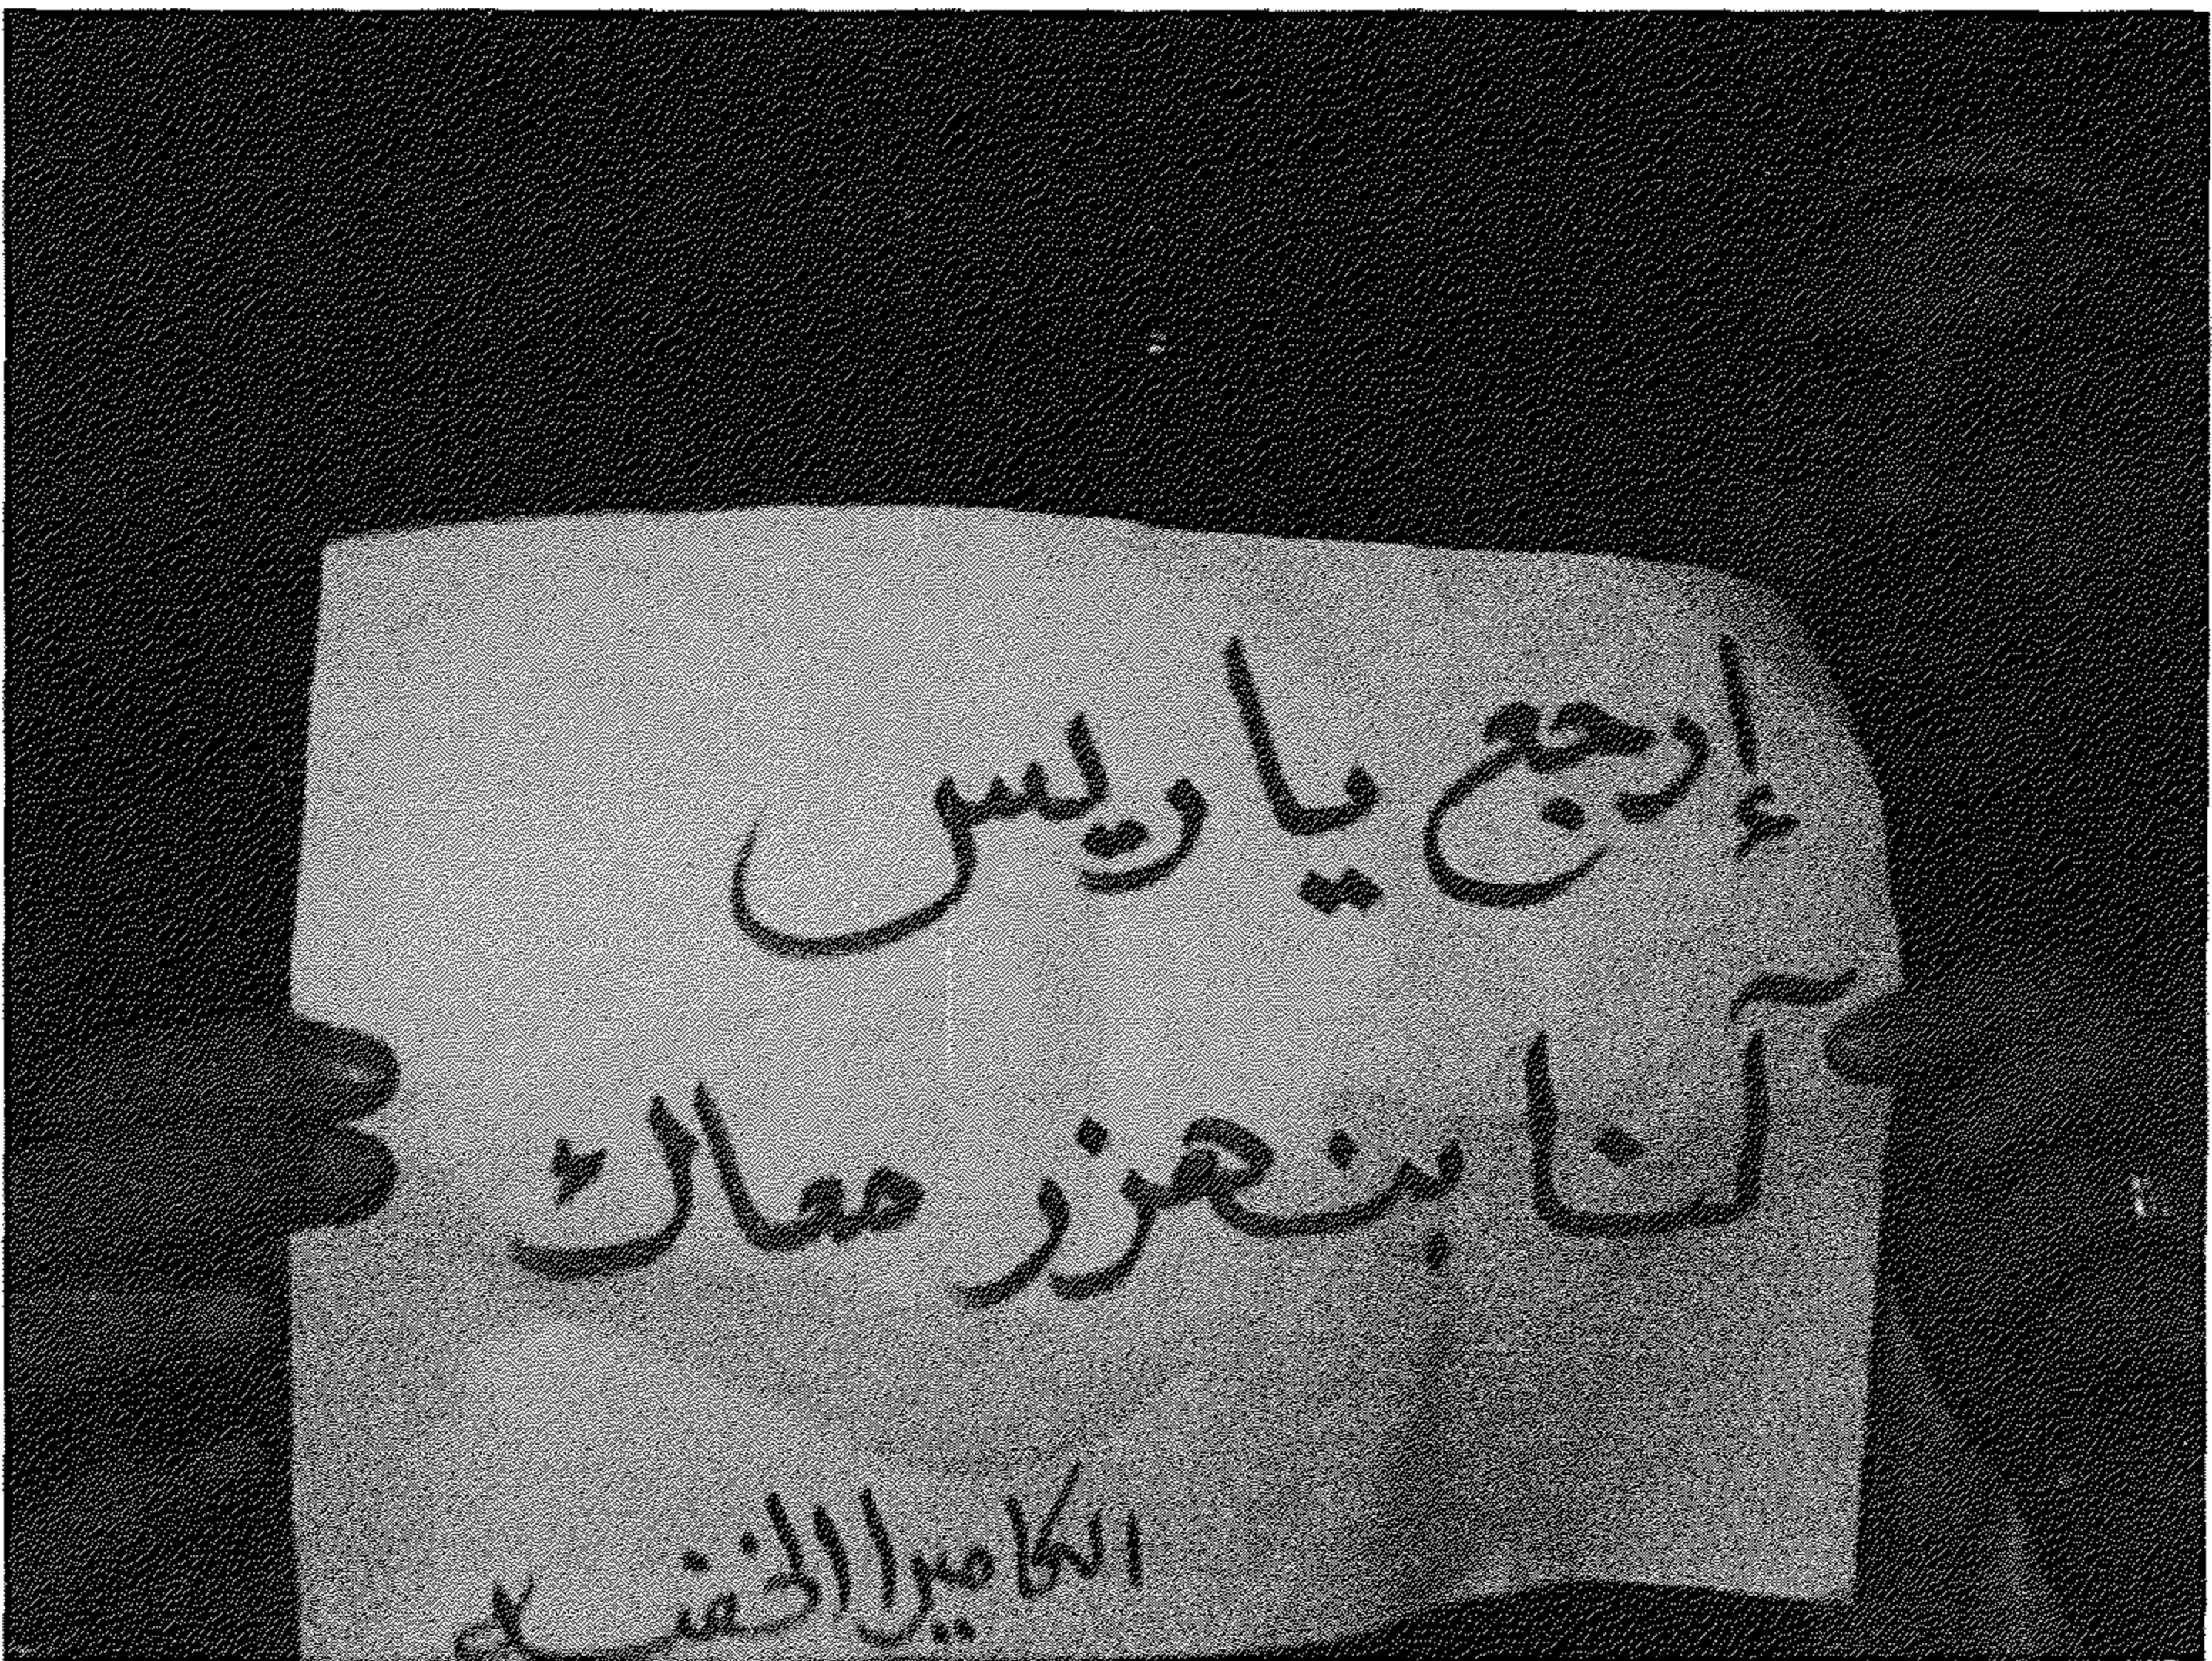 إرجع يا ريس
آحنا بنهزر معاك
الكاميرا الخفيه